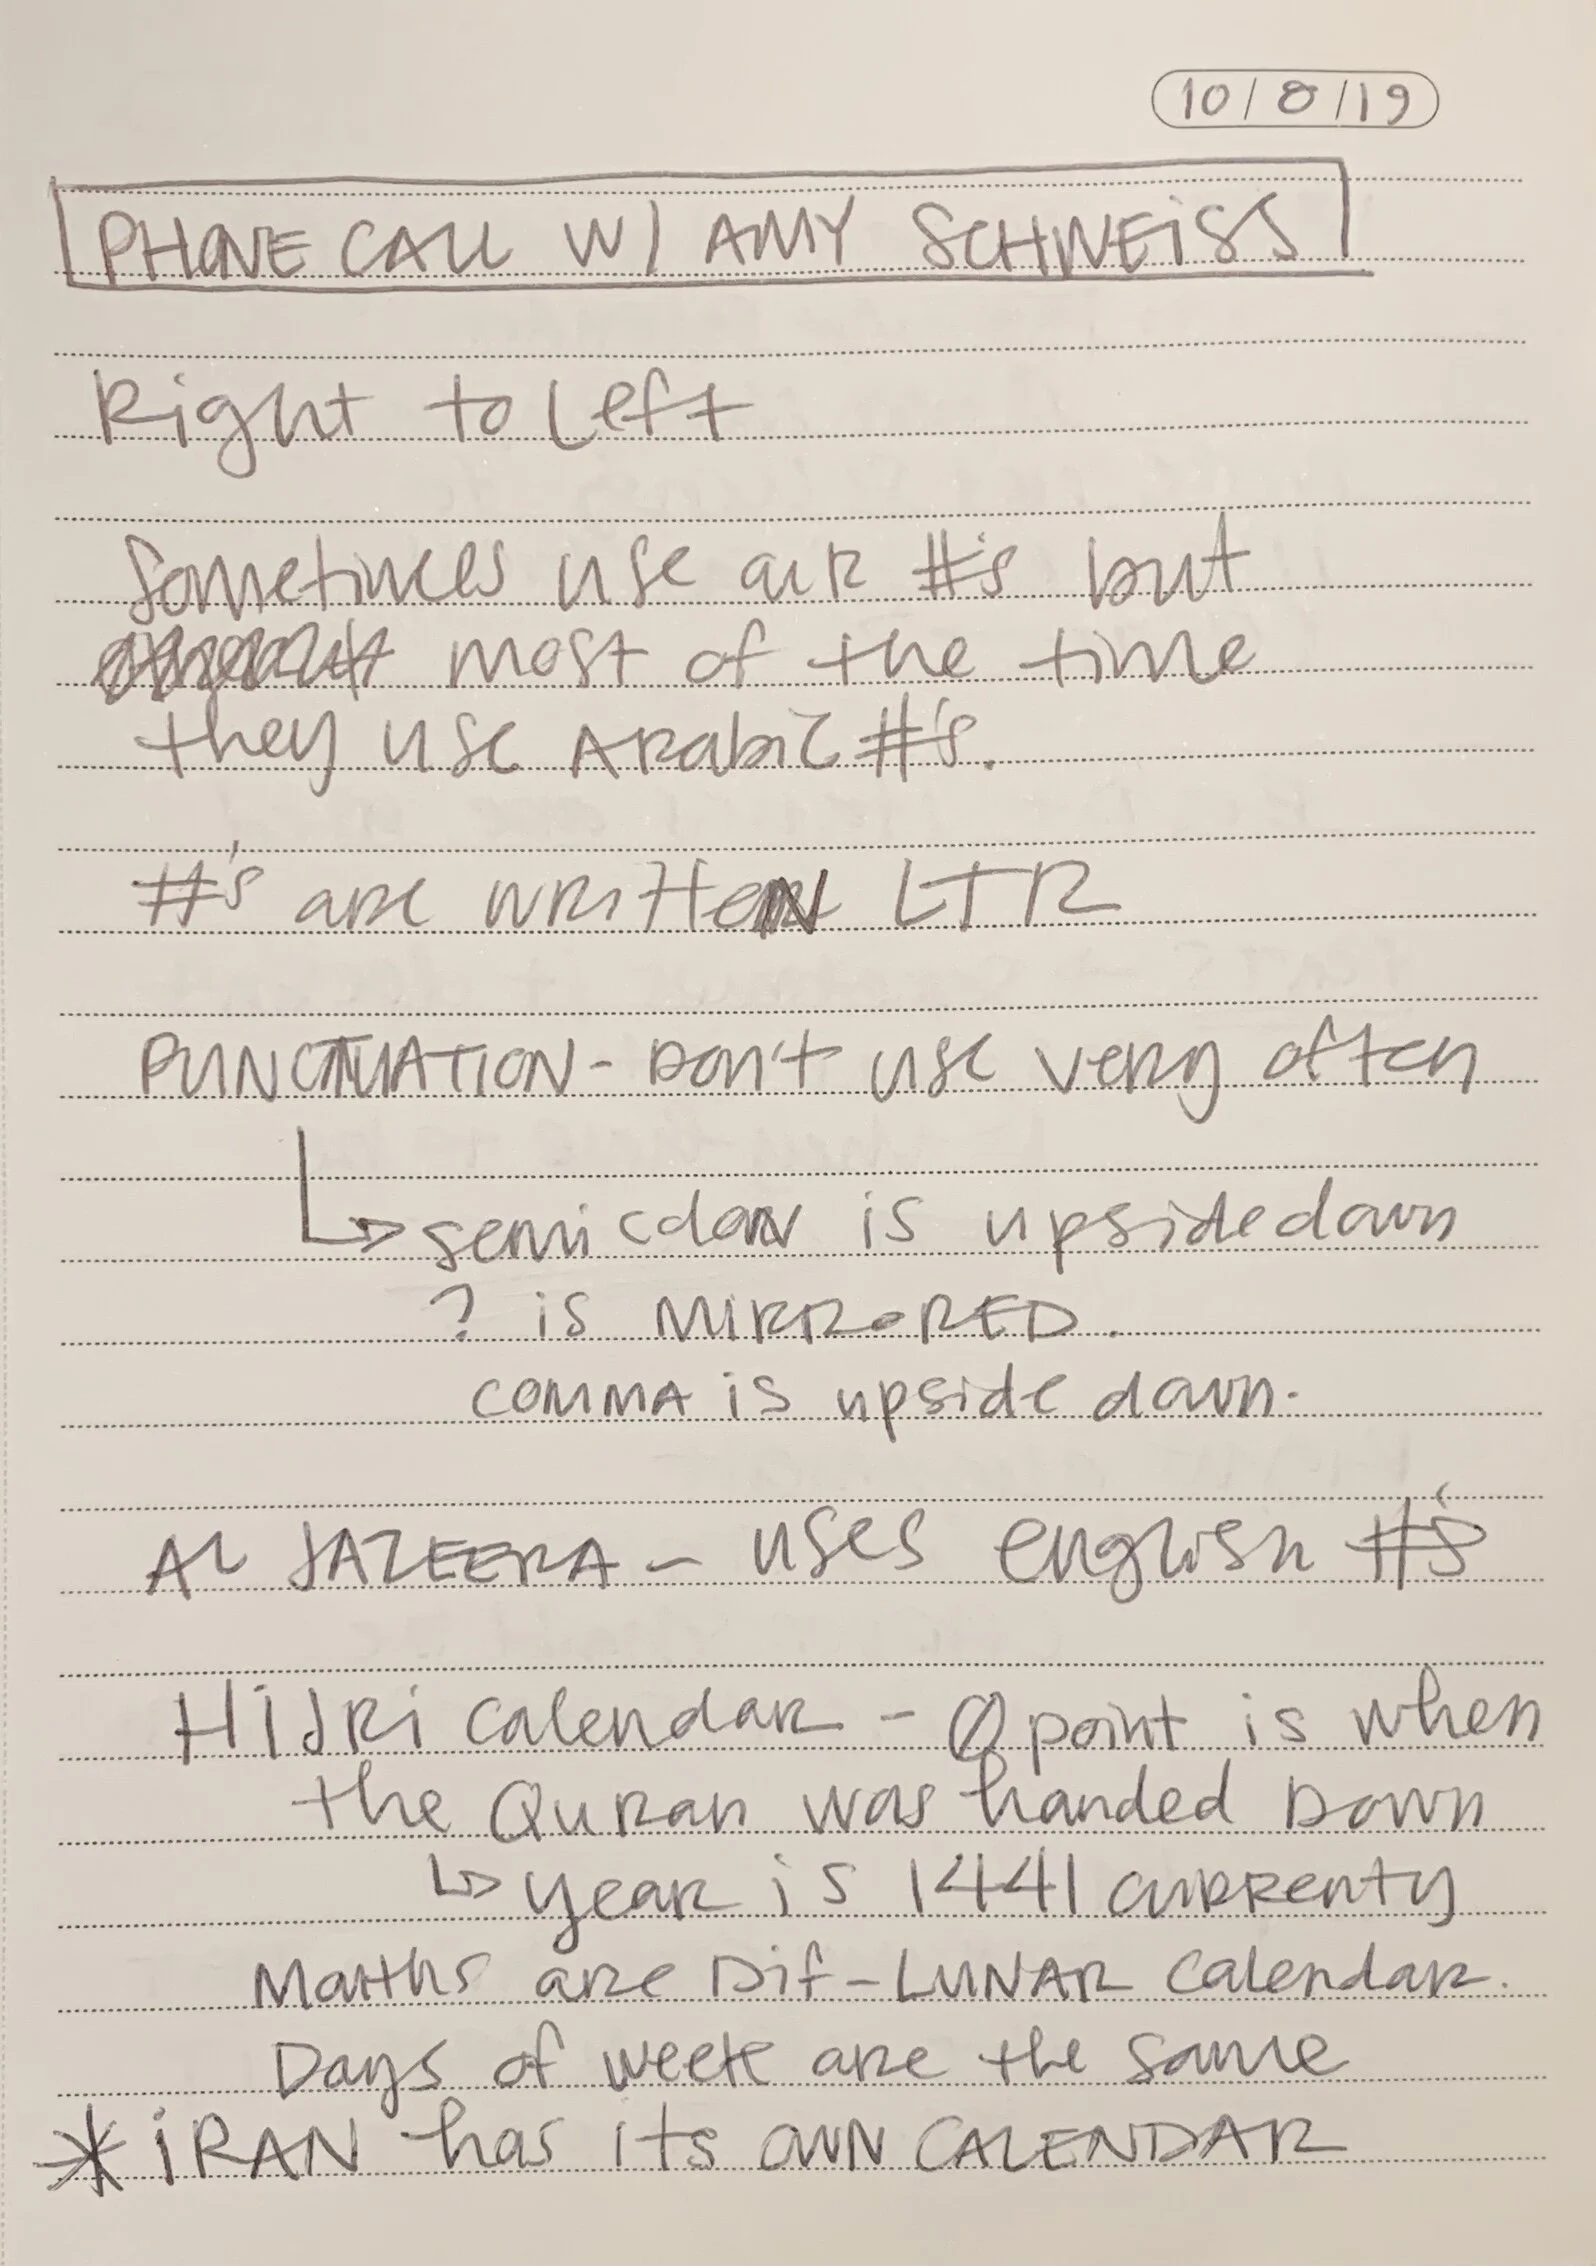 10/8/19
PHONE CALL W/ AMY SCHWEISS
Right to Left
Sometimes use our #'s but
most of the time
they use Arabic #'s.
#'s are written LTR
PUNCTUATION - Don't use very often
↳ semicolon is upside down
? is MIRRORED.
COMMA is upside down.
AL JAZEERA - uses english #'s
HIJRI calendar - 0 point is when
the Quran was handed Down
↳ year is 1441 currenty
Months are Dif - LUNAR calendar.
Days of week are the same
* IRAN has its OWN CALENDAR